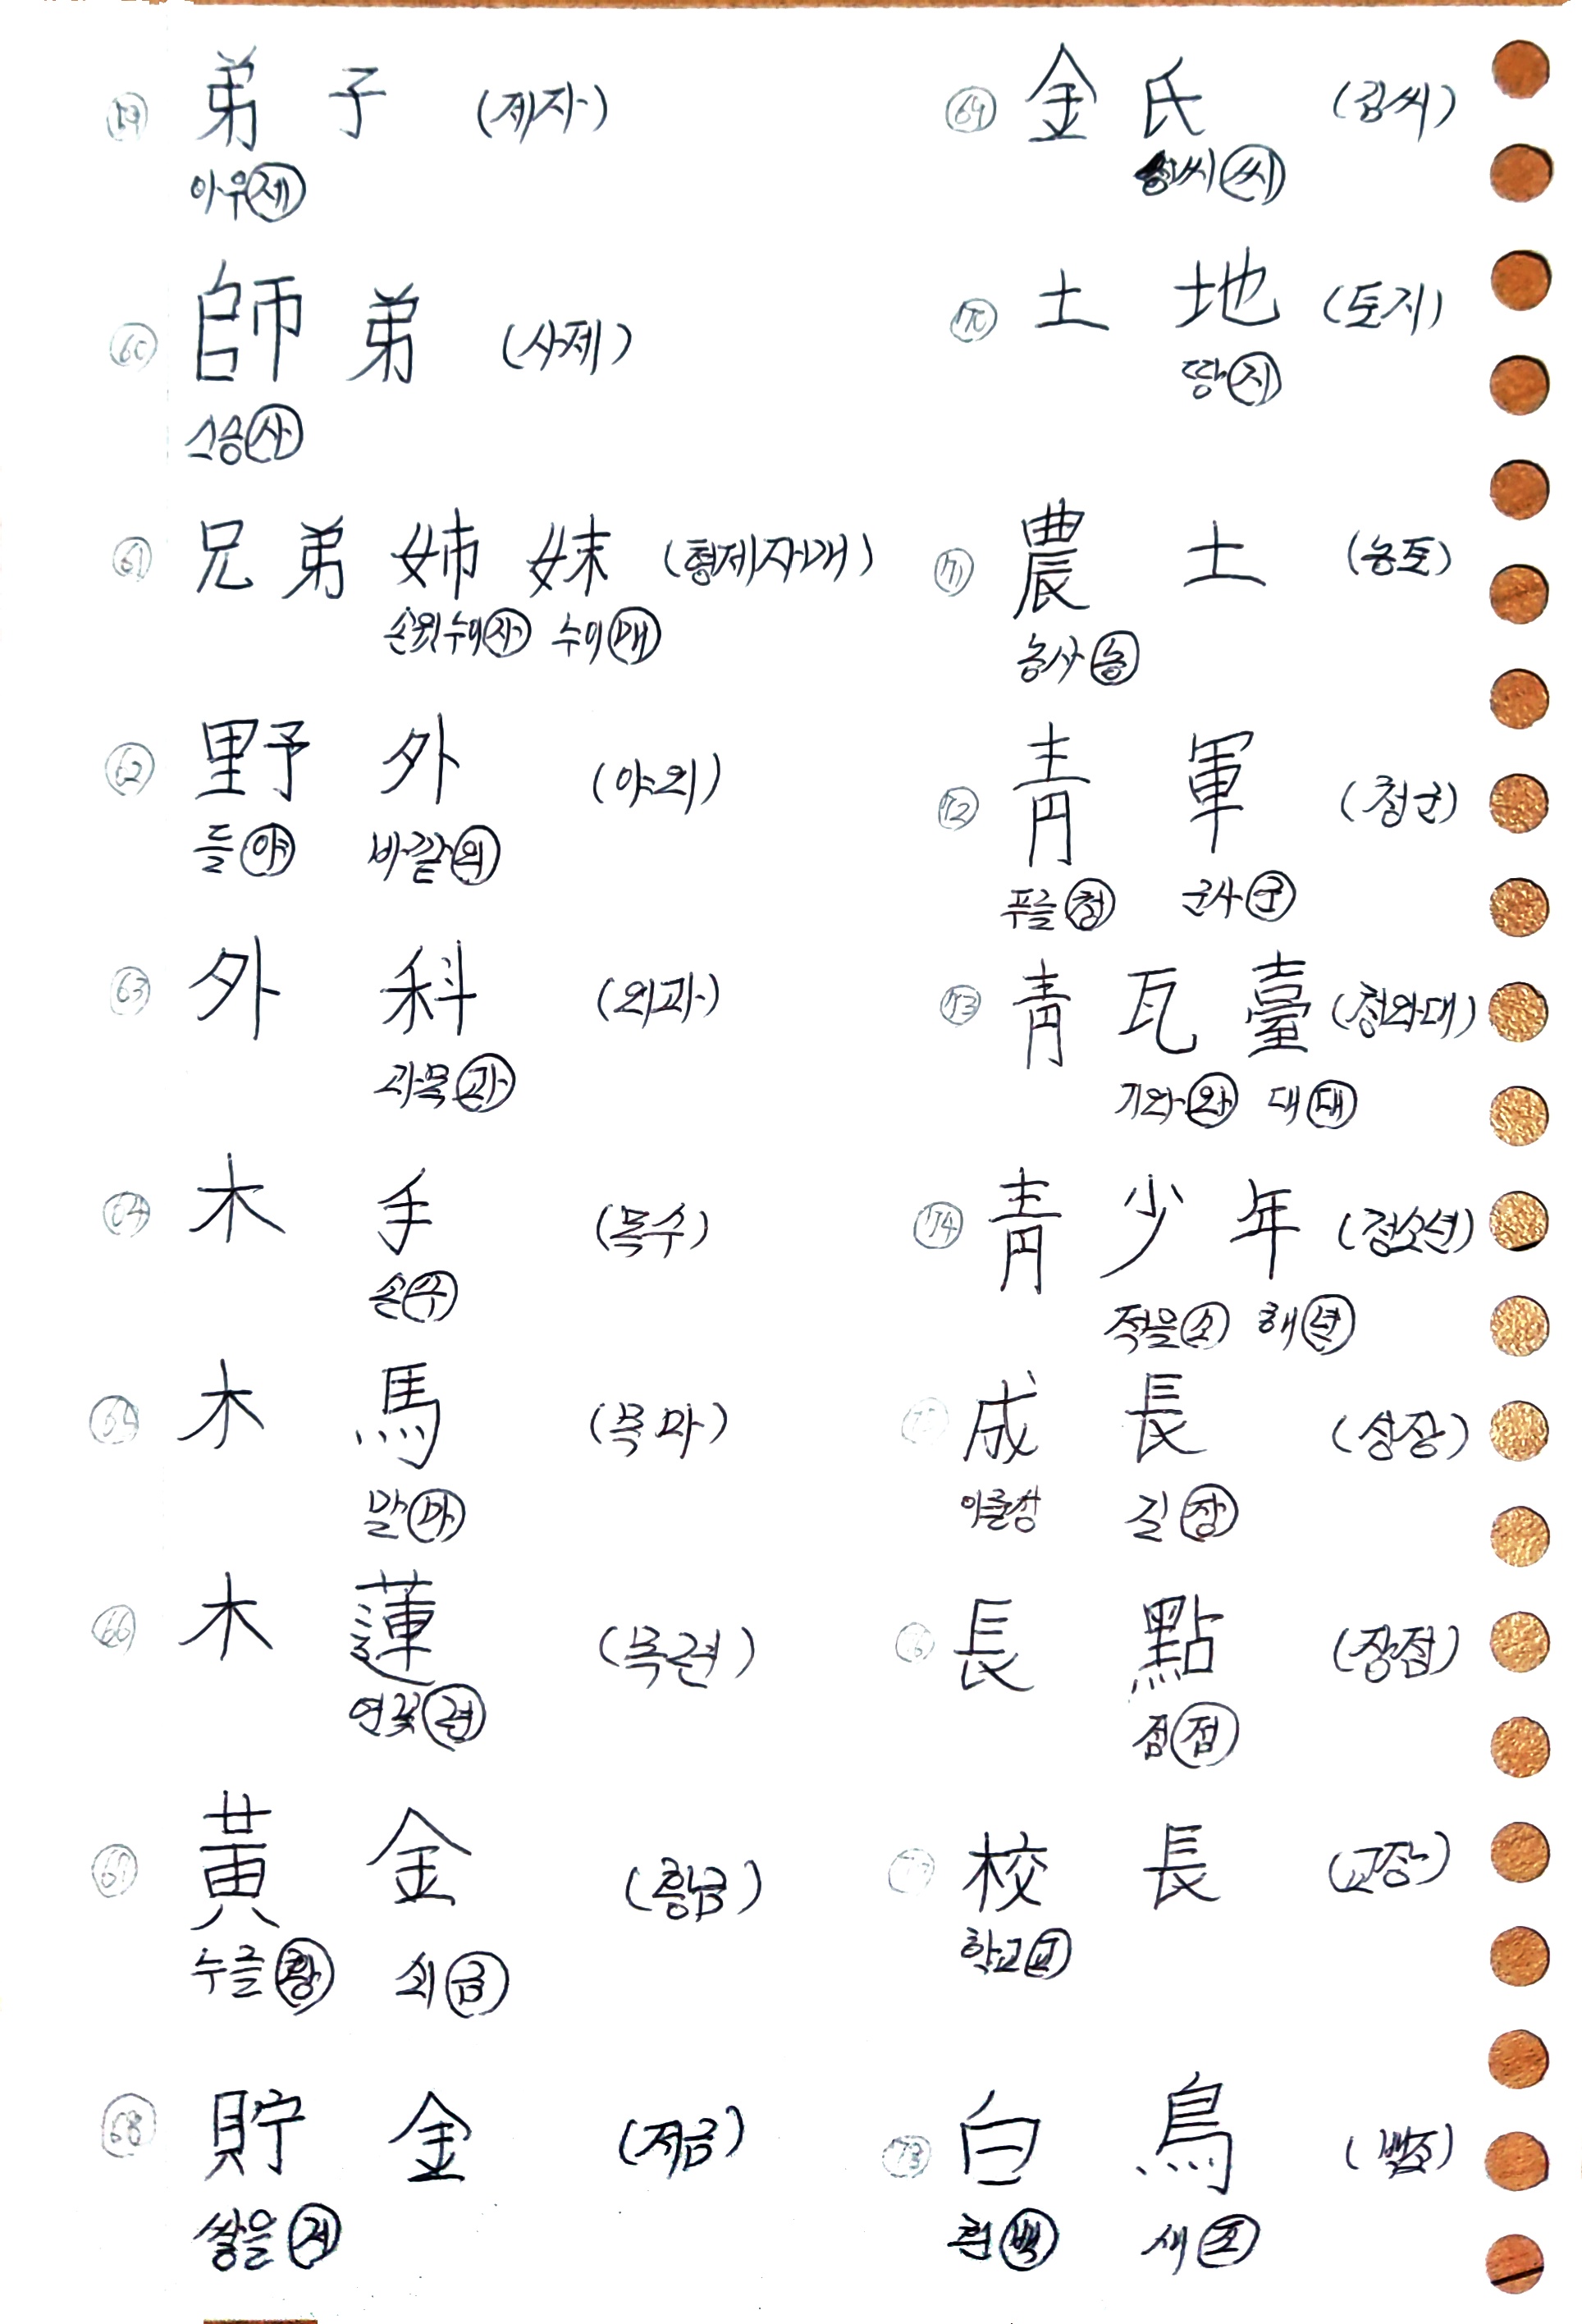 59 弟 子 (제자)
아우 제
60 師 弟 (사제)
스승 사
61 兄 弟 姉 妹 (형제자매)
손윗누이 자 누이 매
62 野 外 (야외)
들 야 바깥 외
63 外 科 (외과)
과목 과
64 木 手 (목수)
손 수
65 木 馬 (목마)
말 마
66 木 蓮 (목련)
연꽃 련
67 黃 金 (황금)
누를 황 쇠 금
68 貯 金 (저금)
쌓을 저
69 金 氏 (김씨)
성씨 씨
70 土 地 (토지)
땅 지
71 農 土 (농토)
농사 농
72 靑 軍 (청군)
푸를 청 군사 군
73 靑 瓦 臺 (청와대)
기와 와 대 대
74 靑 少 年 (청소년)
적을 소 해 년
75 成 長 (성장)
이룰 성 길 장
76 長 點 (장점)
점 점
77 校 長 (교장)
학교 교
78 白 鳥 (백조)
흰 백 새 조